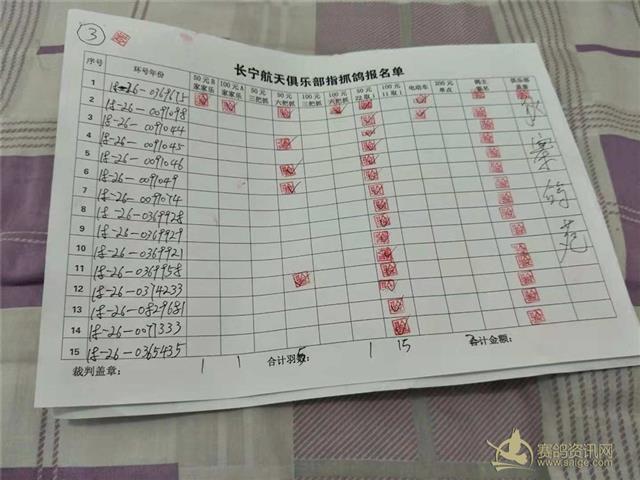 ③
长宁航天俱乐部指抓鸽报名单
序号 环号年份 50元B家家乐 100元A家家乐 50元三把抓 50元六把抓 100元三把抓 100元六把抓 50元22取1 100元11取1 电动车 200元单点 鸽主签名 俱乐部盖章
1 18-26-0369675
2 18-26-0091098
3 18-26-0091044
4 18-26-0091045
5 18-26-0091046
6 18-26-0091049
7 18-26-0091074
8 18-26-0369928
9 18-26-0369929
10 18-26-0369921
11 18-26-0369958
12 18-26-0374233
13 18-26-0829681
14 18-26-0077333
15 18-26-0365435
裁判盖章： 1 1 合计羽数： 5 1 15 合计金额：
赛鸽资讯网
www.saige.com